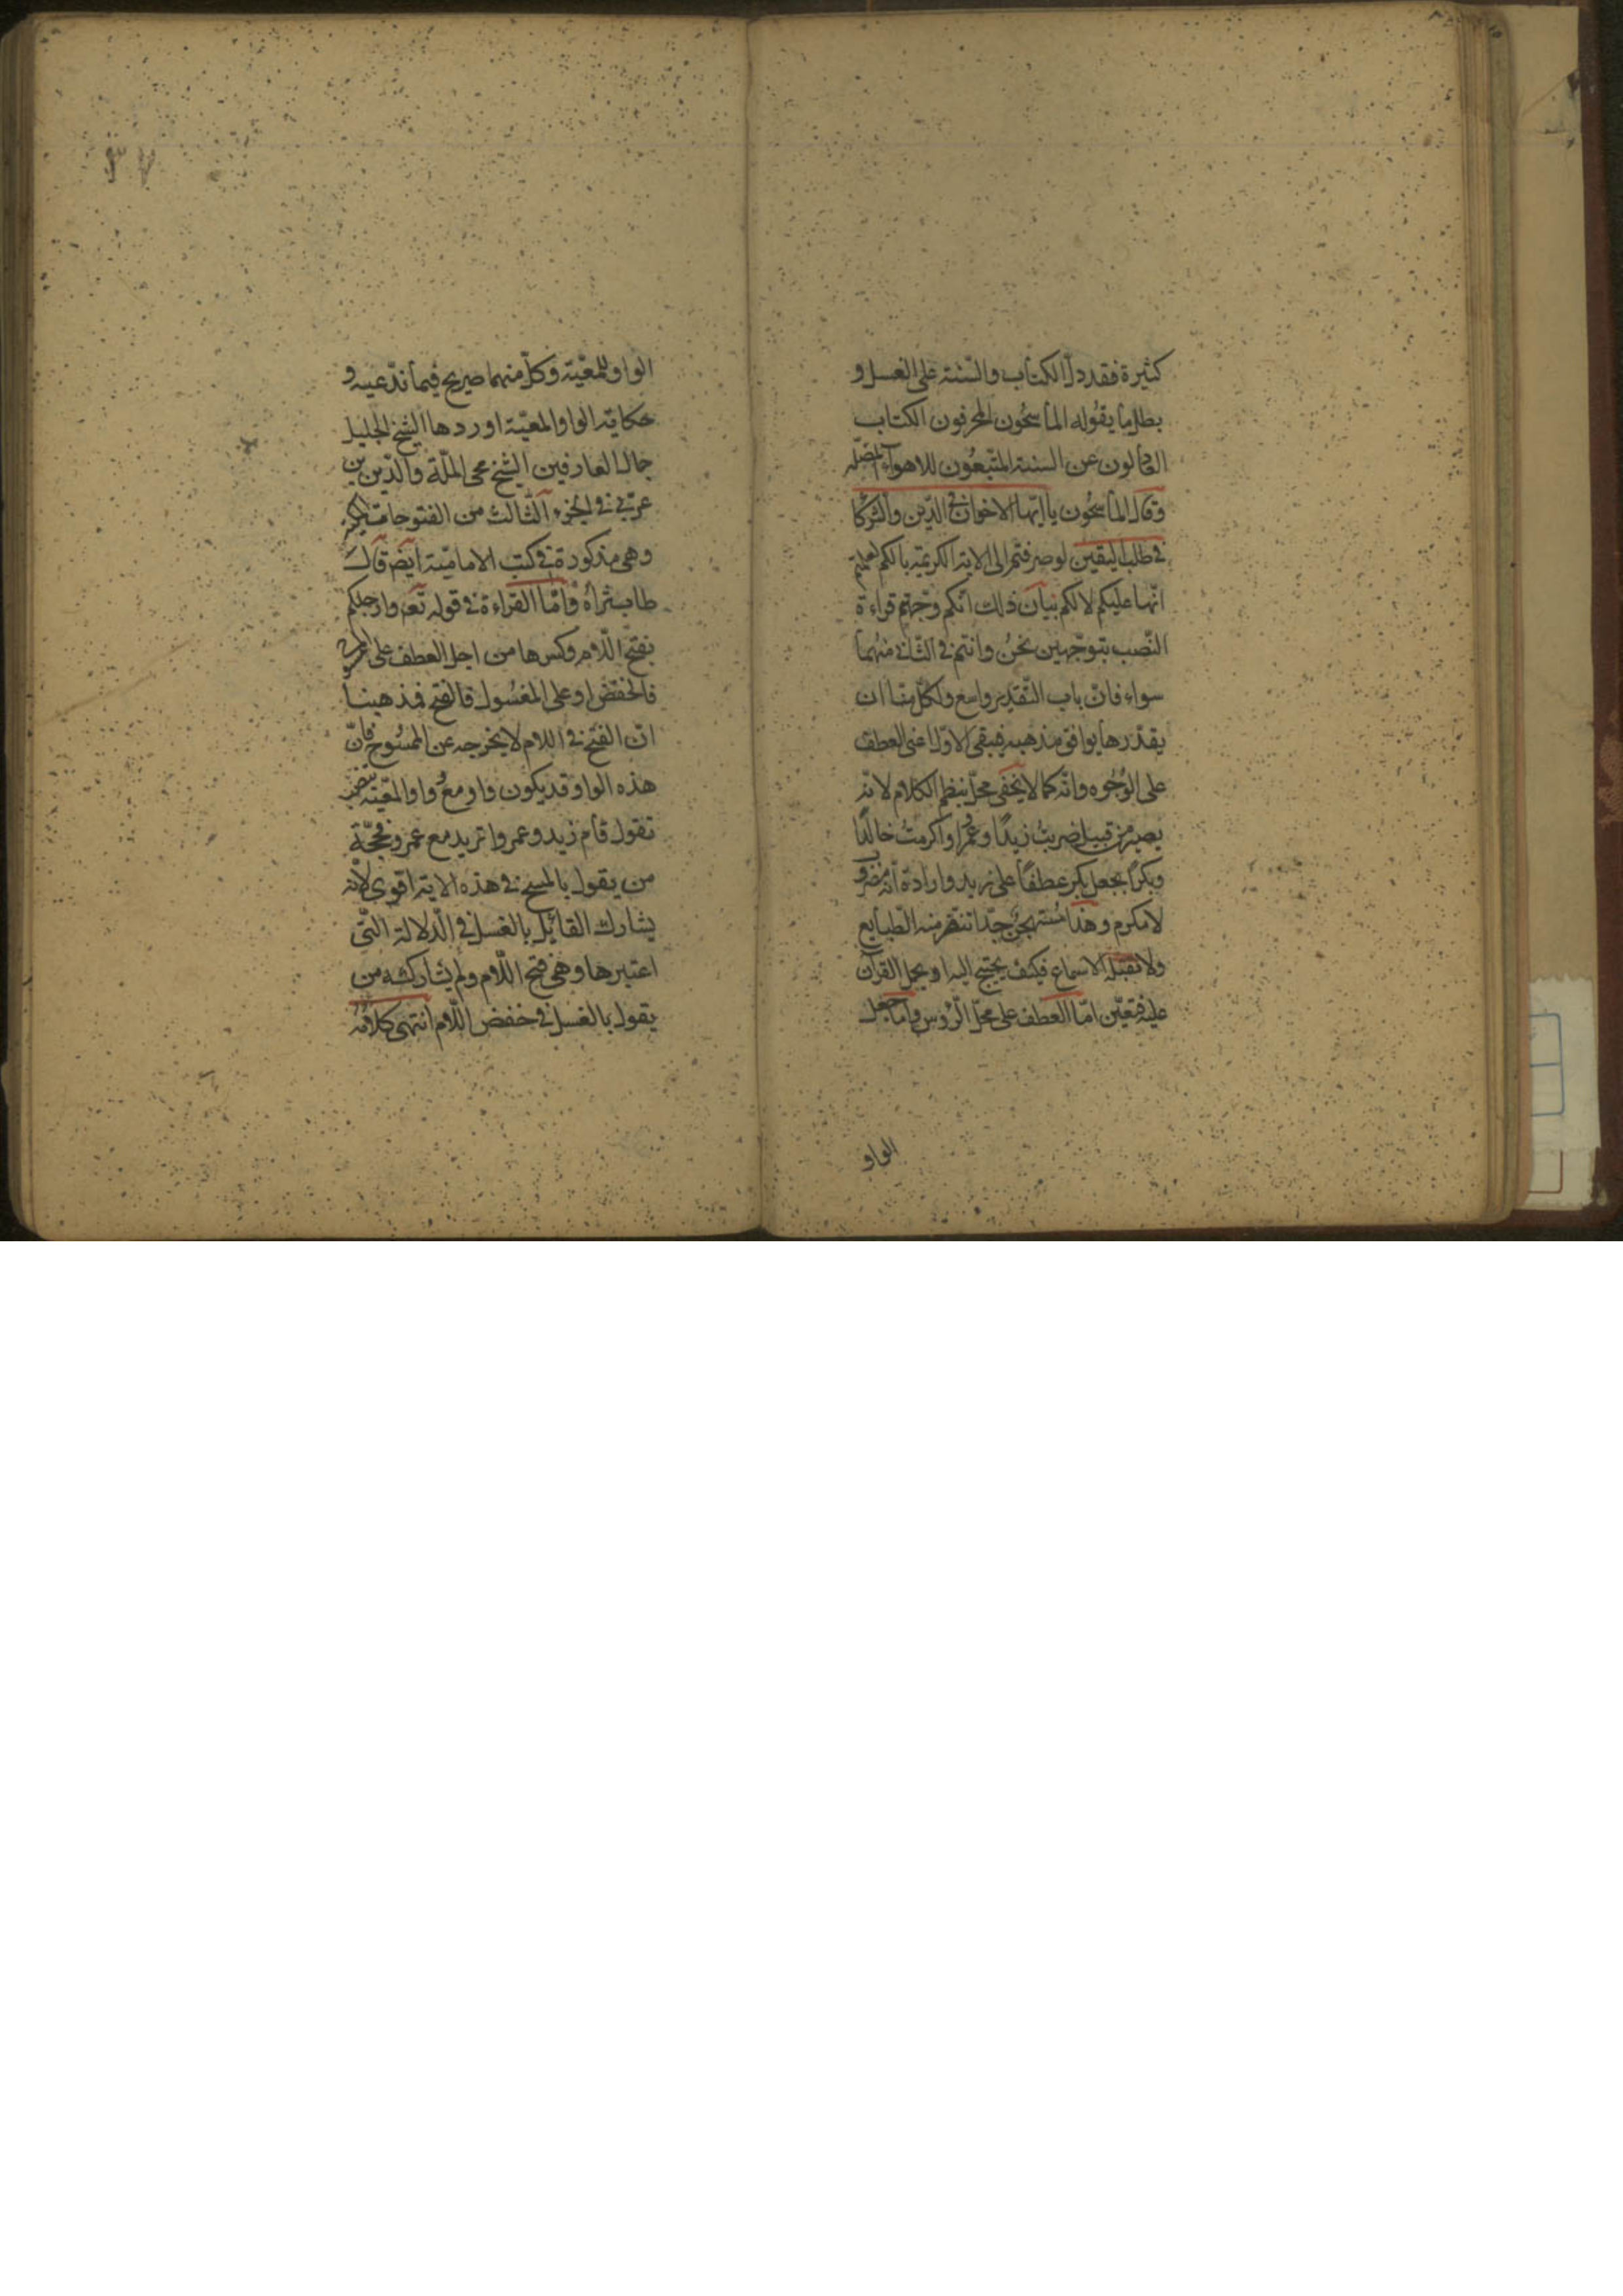 كثيرة فقد دل الكتاب والسّنة على الغسل و
بطل ما يقوله الماسحون المحرفون الكتاب
العادلون عن السنة المتّبعون للاهواء المضلّه
وقال الماسحون يا ايّها الاخوان فى الدّين والشركا
فى طلب اليقين لو صرفتم الى الاية الكريمة بالكم لعلمتم
انّها عليكم لا لكم بيان ذلك انّكم وجّهتم قراءة
النّصب بتوجّهين نحن وانتم فى الثّانى منهما
سواء فانّ باب التّقدير واسع ولكلّ منّا ان
يقدّر ما يوافق مذهبه فبقى الاوّل اعنى العطف
على الوُجُوه وانّه كما لا يخفى مخلّ بنظم الكلام لانّه
يصير من قبيل ضربتُ زيدًا وعمرًا واكرمتُ خالدًا
وبكرًا بجعل بكر عطفًا على زيد وارادة انّه مضروب
لا مكرم وهذا مُستهجَن جدّا تنفّر منه الطّبايع
ولا تقبله الاسماع فكيف يجنح اليه او يحمل القرآن
عليه فتعيّن امّا العطف على محلّ الرّؤس وامّا جعل
الواو
٣٧
الواو للمعيّة وكلّ منهما صريح فيما ندّعيه و
حكاية الواو المعيّة اوردها الشيخ الجليل
جمال العارفين الشّيخ محى الملّة والدّين بن
عربى فى الجزء الثالث من الفتوحات المكيه
وهى مذكورة فى كتب الاماميّة ايضا قال
طاب ثراه وامّا القراءة فى قوله تعـ وارجلكم
بفتح اللّام وكسرها من اجل العطف على الممسوح
فالخفض او على المغسول فالفتح فمذهبنا
انّ الفتح فى اللام لا يخرجه عن الممسُوح فانّ
هذه الواو قد يكون واو مع وواو المعيّة ينصب
تقول قام زيد وعمروا تريد مع عمرو فحجّة
من يقول بالمسح فى هذه الاية اقوى لانّه
يشارك القائل بالغسل فى الدّلالة الّتى
اعتبرها وهى فتح اللّام ولم يشاركه من
يقول بالغسل فى خفض اللّام انتهى كلامُه